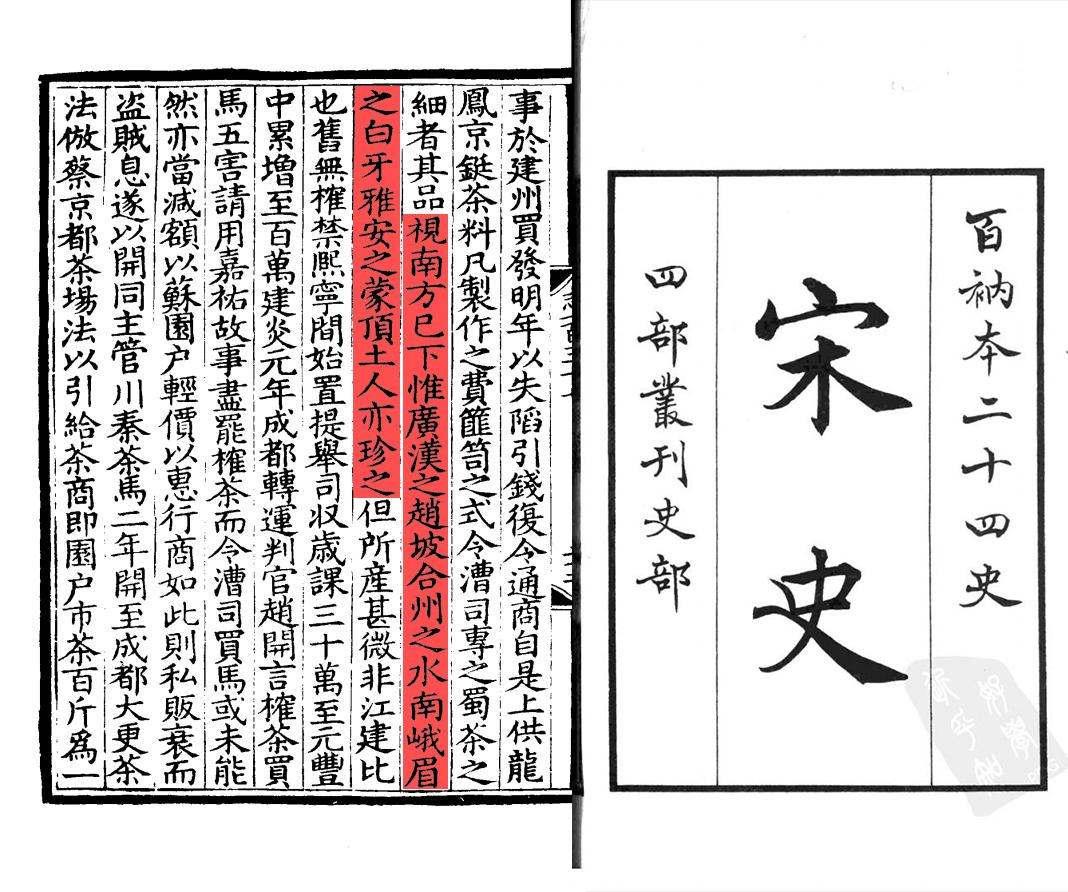 百衲本二十四史
宋史
四部叢刊史部
事於建州買發明年以失陷引錢復令通商自是上供龍
鳳京鋌茶料凡製作之費篚笥之式令漕司專之蜀茶之
細者其品視南方已下惟廣漢之趙坡合州之水南峨眉
之白牙雅安之蒙頂土人亦珍之但所産甚微非江建比
也舊無榷禁熙寧間始置提舉司収歲課三十萬至元豐
中累增至百萬建炎元年成都轉運判官趙開言榷茶買
馬五害請用嘉祐故事盡罷榷茶而令漕司買馬或未能
然亦當減額以蘇園户輕價以惠行商如此則私販衰而
盗賊息遂以開同主管川秦茶馬二年開至成都大更茶
法倣蔡京都茶場法以引給茶商即園户市茶百斤爲一